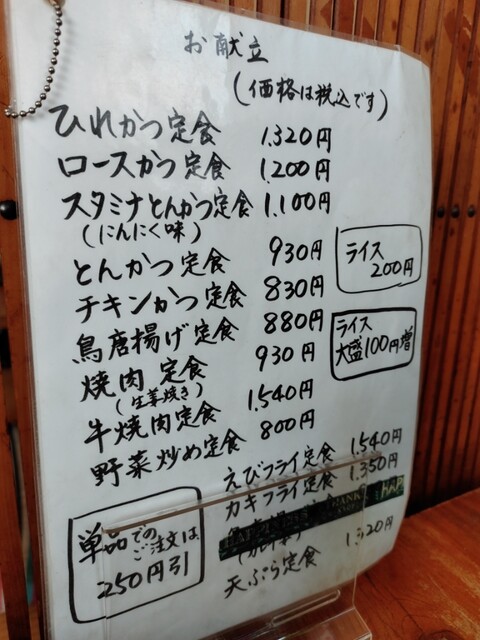 お献立
(価格は税込です)
ひれかつ定食 1.320円
ロースかつ定食 1.200円
スタミナとんかつ定食 1.100円
(にんにく味)
とんかつ定食 930円
チキンかつ定食 830円
鳥唐揚げ定食 880円
焼肉定食 930円
(生姜焼き)
牛焼肉定食 1.540円
野菜炒め定食 800円
えびフライ定食 1.540円
カキフライ定食 1.350円
天ぷら定食
ライス
200円
ライス
大盛100円増
単品での
ご注文は、
250円引